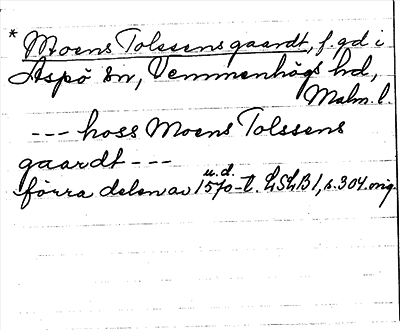 * Moens Tolssens gaardt, f. gd i
Aspö sn, Vemmenhögs hd,
Malm. l.
--- hoss Moens Tolssens
gaardt ---
u.d.
förra delen av 1570-t. LSLB 1, s. 304. orig.